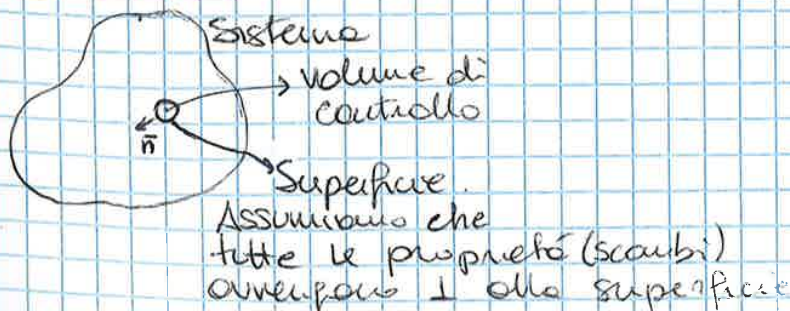 Sistema
volume di
controllo
n̄
Superficie.
Assumiamo che
tutte le proprietá (scambi)
avvengono ⊥ alla superficie